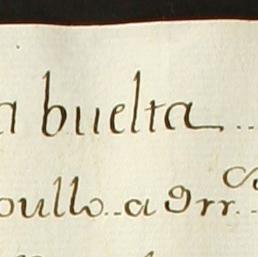 a buelta...
oullo..a 9rr.